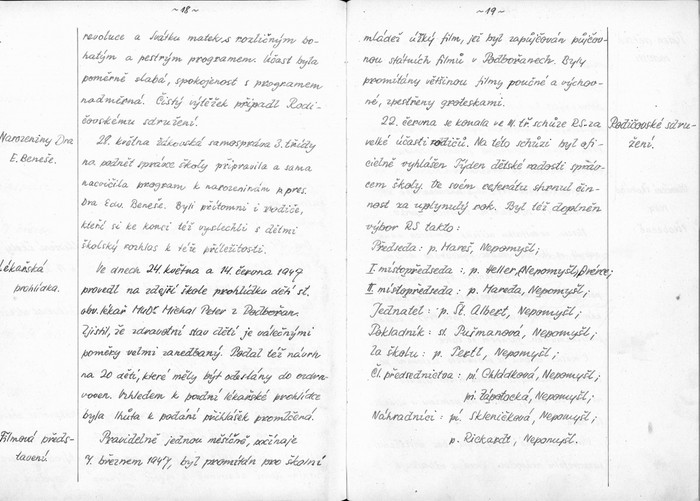 ~ 18 ~
revoluce a svátku matek s rozličným bo-
hatým a pestrým programem. Účast byla
poměrně slabá, spokojenost s programem
nadměrná. Čistý výtěžek připadl Rodi-
čovskému sdružení.
Narozeniny Dra
E. Beneše.
28. května žákovská samospráva 3. třídy
na podnět správce školy připravila a sama
nacvičila program k narozeninám p. pres.
Dra Edv. Beneše. Byli přítomni i rodiče,
kteří si ke konci též vyslechli s dětmi
školský rozhlas k téže příležitosti.
Lékařská
prohlídka.
Ve dnech 24. května a 14. června 1947
provedl na zdejší škole prohlídku dětí st.
obv. lékař MUDr. Michal Peter z Podbořan.
Zjistil, že zdravotní stav dětí je válečnými
poměry velmi zanedbaný. Podal též návrh
na 20 dětí, které měly být odeslány do ozdra-
voven. Vzhledem k pozdní lékařské prohlídce
byla lhůta k podání přihlášek promlčená.
Filmová předs-
tavení.
Pravidelně jednou měsíčně, počínaje
7. březnem 1947, byl promítán pro školní
~ 19 ~
mládež úzký film, jež byl zapůjčován půjčov-
nou státních filmů v Podbořanech. Byly
promítány většinou filmy poučné a výchov-
né, zpestřeny groteskami.
Rodičovské sdru-
žení.
22. června se konala ve II. tř. schůze RS za
velké účasti rodičů. Na této schůzi byl ofi-
cielně vyhlášen Týden dětské radosti správ-
cem školy. Ve svém referátu shrnul čin-
nost za uplynulý rok. Byl též doplněn
výbor RS takto:
Předseda: p. Mareš, Nepomyšl;
I. místopředseda: p. Heller, Nepomyšl, Dvérce;
II. místopředseda: p. Mareda, Nepomyšl;
Jednatel: p. Št. Albert, Nepomyšl;
Pokladník: sl. Purmanová, Nepomyšl;
Za školu: p. Pertl, Nepomyšl;
Čl. předsednictva: pí. Chládková, Nepomyšl;
pí. Zápotocká, Nepomyšl;
Náhradníci: pí. Skleničková, Nepomyšl;
p. Rickardt, Nepomyšl.